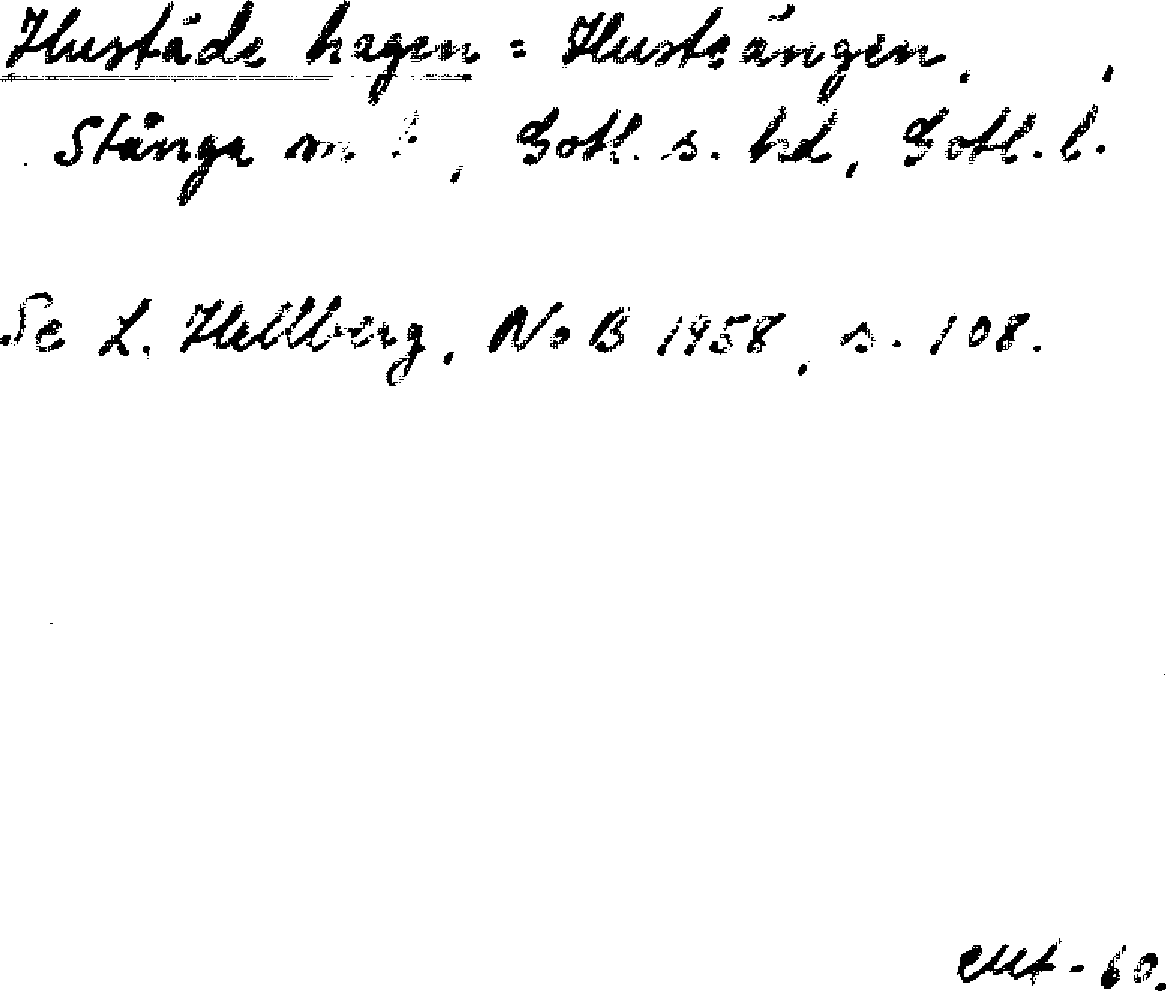 Hustäde hagen = Husteängen,
Stånga sn, Gotl. s. hd, Gotl. l.
Se L. Hellberg, NoB 1958, s. 108.
-60.